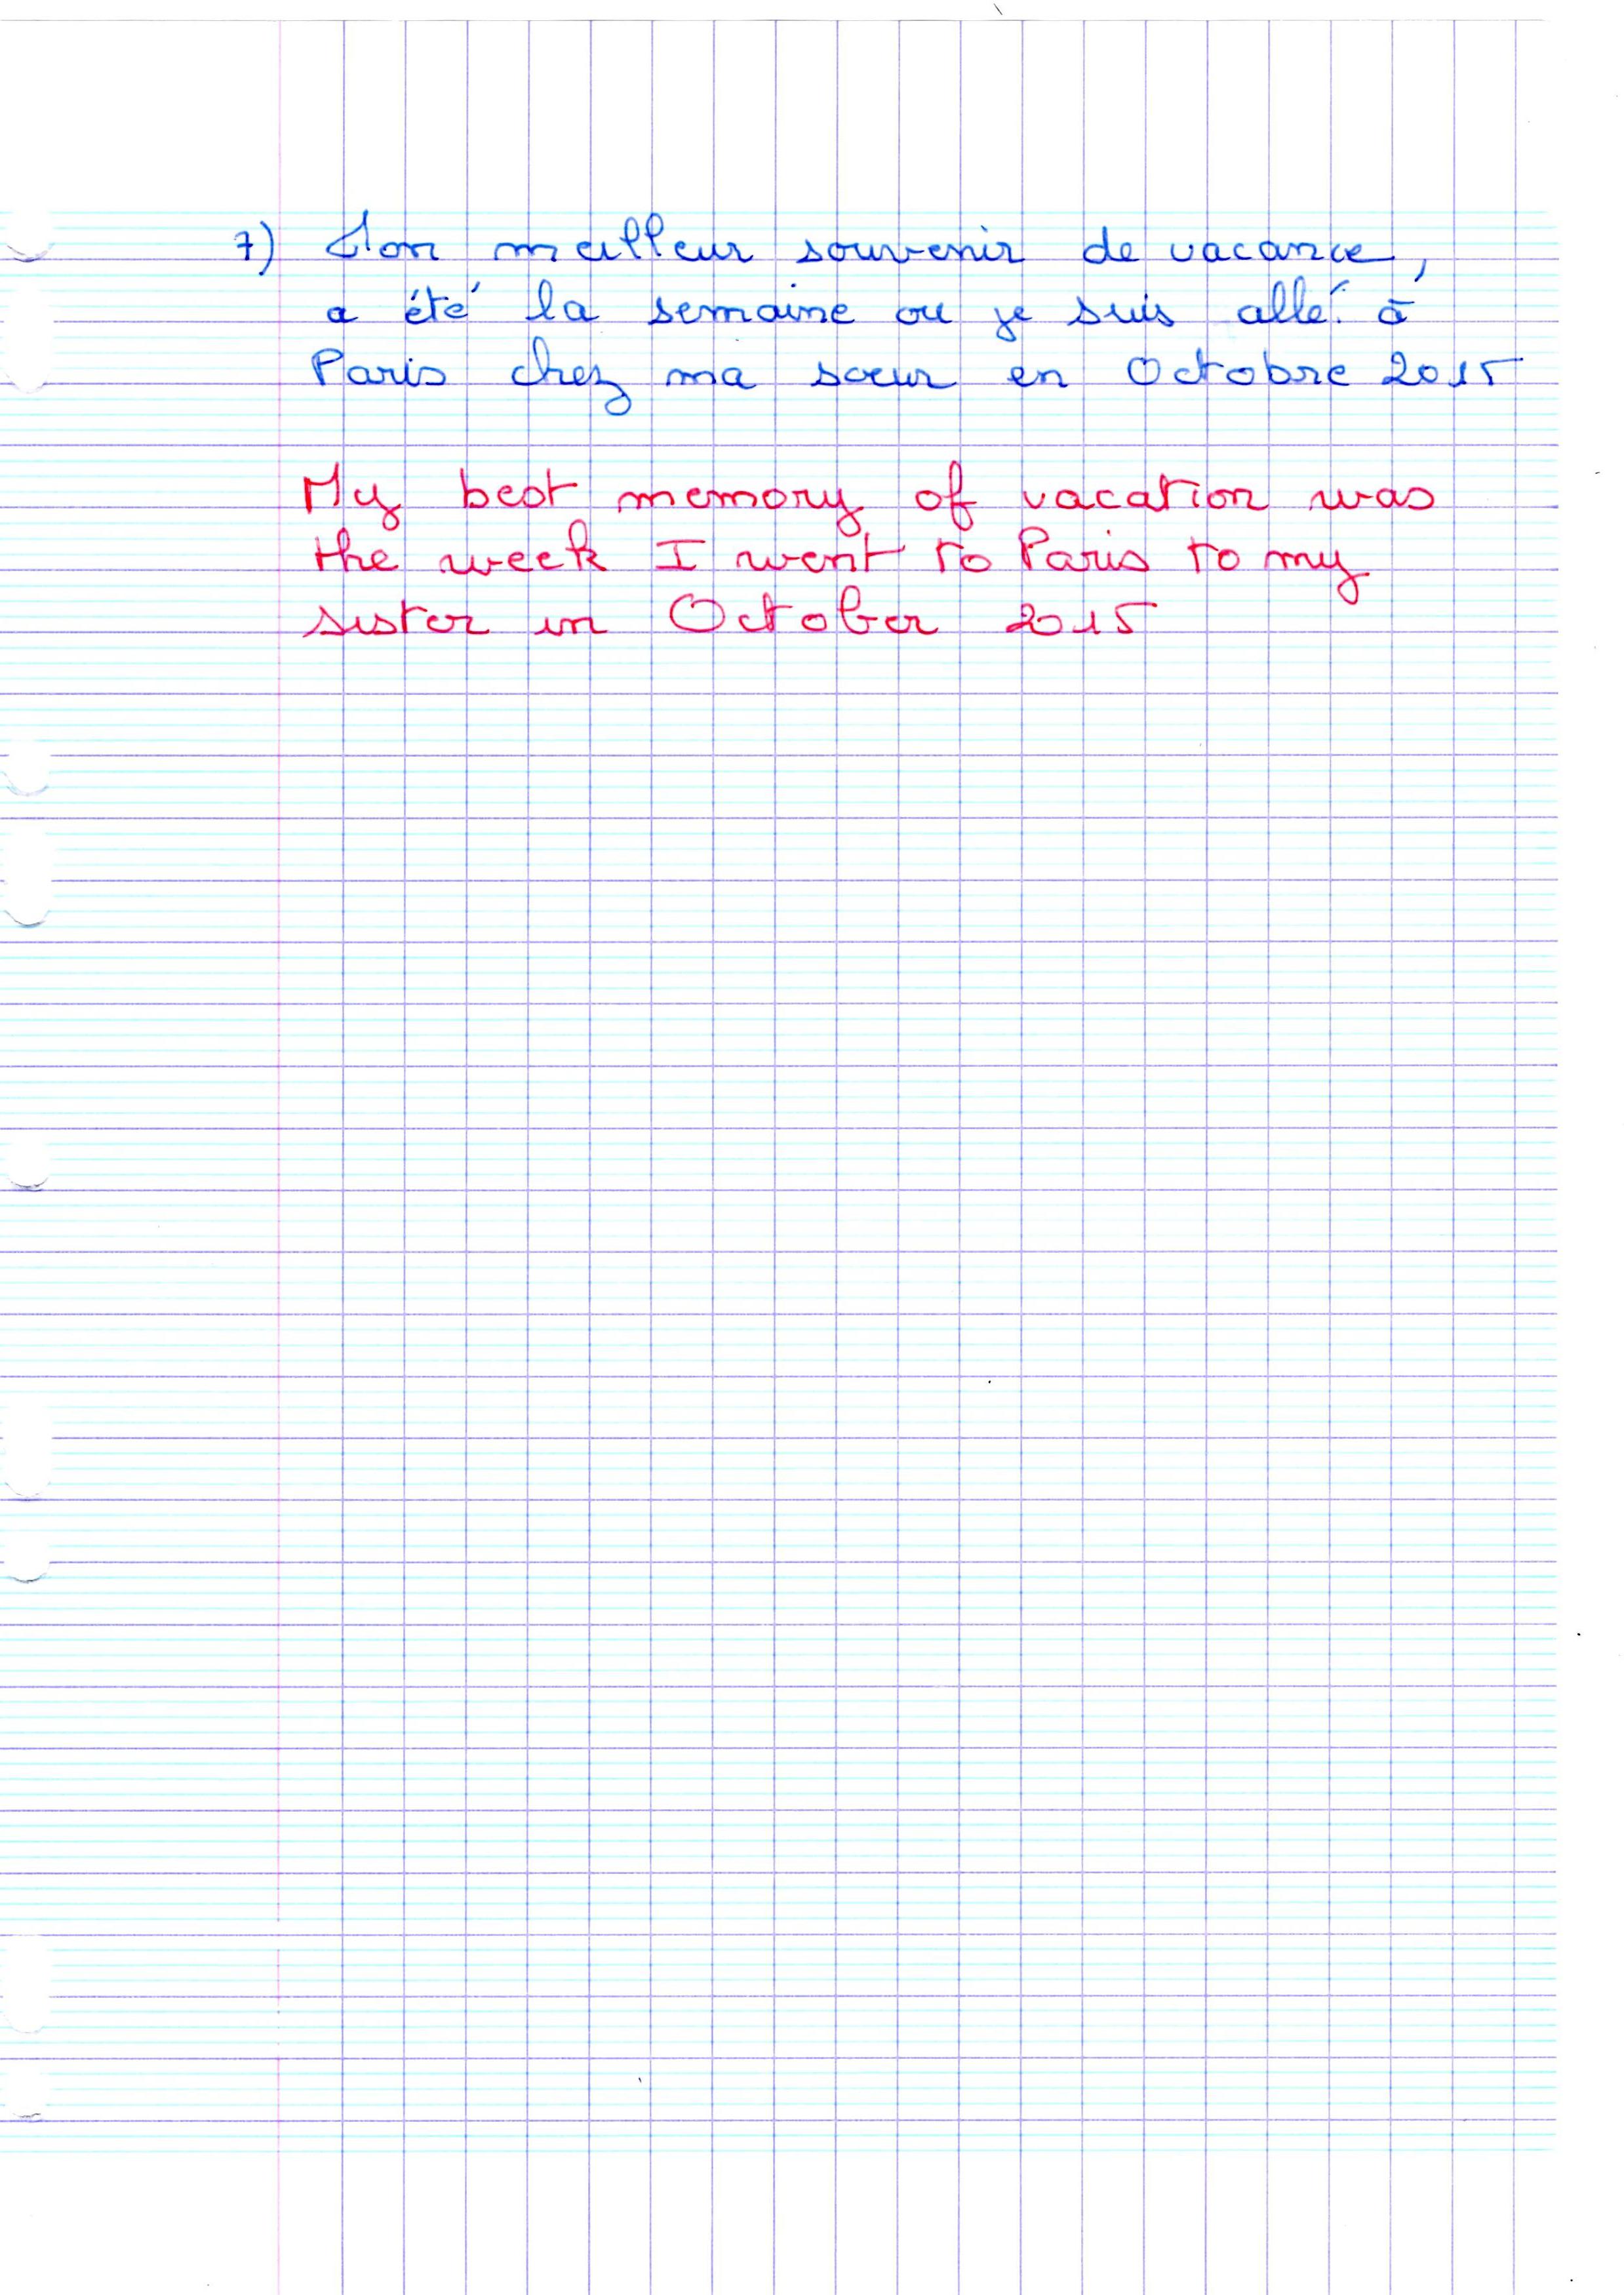 7) Mon meilleur souvenir de vacance,
a été la semaine ou je suis allé à
Paris chez ma soeur en Octobre 2015
My best memory of vacation was
the week I went to Paris to my
sister in October 2015